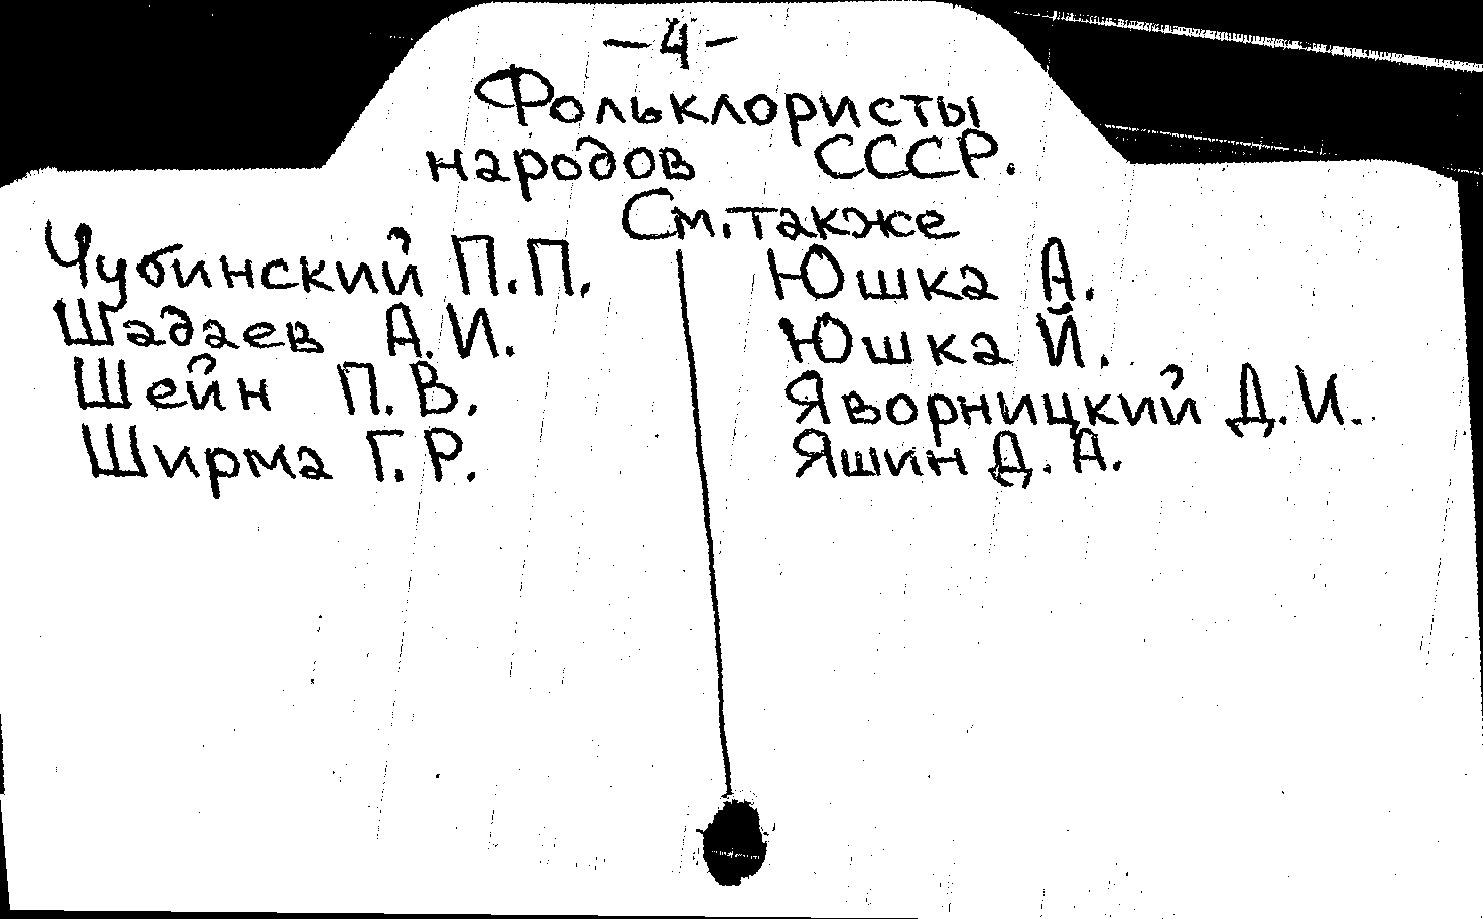 -4-
Фольклористы
народов СССР.
См. также
Чубинский П.П.
Шадаев А.И.
Шейн П.В.
Ширма Г.Р.
Юшка А.
Юшка Й.
Яворницкий Д.И.
Яшин Д.А.